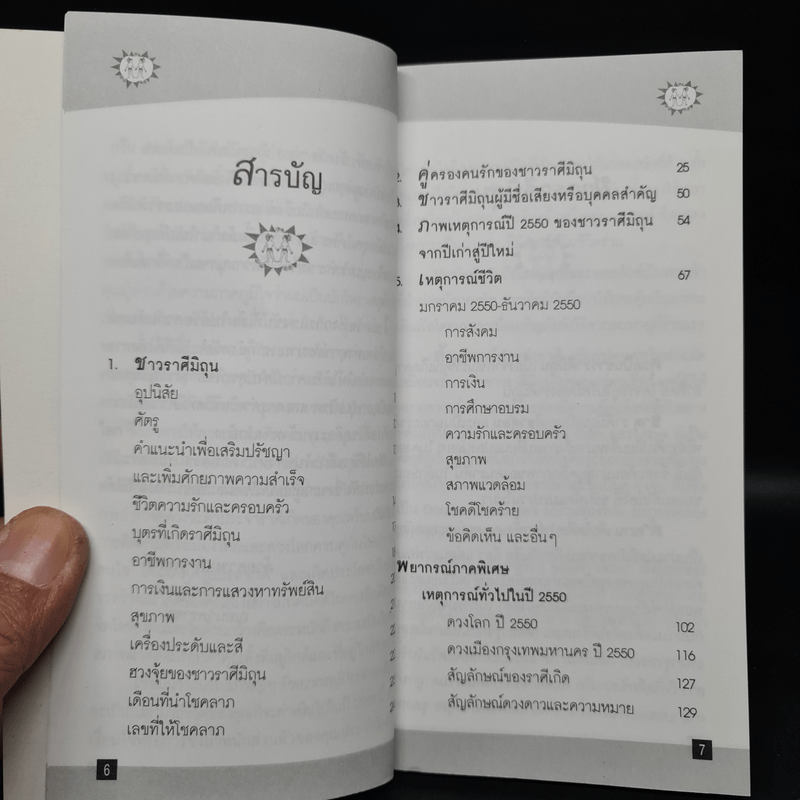 สารบัญ
1. ชาวราศีมิถุน
อุปนิสัย
ศัตรู
คำแนะนำเพื่อเสริมปรัชญา
และเพิ่มศักยภาพความสำเร็จ
ชีวิตความรักและครอบครัว
บุตรที่เกิดราศีมิถุน
อาชีพการงาน
การเงินและการแสวงหาทรัพย์สิน
สุขภาพ
เครื่องประดับและสี
ฮวงจุ้ยของชาวราศีมิถุน
เดือนที่นำโชคลาภ
เลขที่ให้โชคลาภ
6
2. คู่ครองคนรักของชาวราศีมิถุน 25
3. ชาวราศีมิถุนผู้มีชื่อเสียงหรือบุคคลสำคัญ 50
4. ภาพเหตุการณ์ปี 2550 ของชาวราศีมิถุน 54
จากปีเก่าสู่ปีใหม่
5. เหตุการณ์ชีวิต 67
มกราคม 2550-ธันวาคม 2550
การสังคม
อาชีพการงาน
การเงิน
การศึกษาอบรม
ความรักและครอบครัว
สุขภาพ
สภาพแวดล้อม
โชคดีโชคร้าย
ข้อคิดเห็น และอื่นๆ
พยากรณ์ภาคพิเศษ
เหตุการณ์ทั่วไปในปี 2550
ดวงโลก ปี 2550 102
ดวงเมืองกรุงเทพมหานคร ปี 2550 116
สัญลักษณ์ของราศีเกิด 127
สัญลักษณ์ดวงดาวและความหมาย 129
7